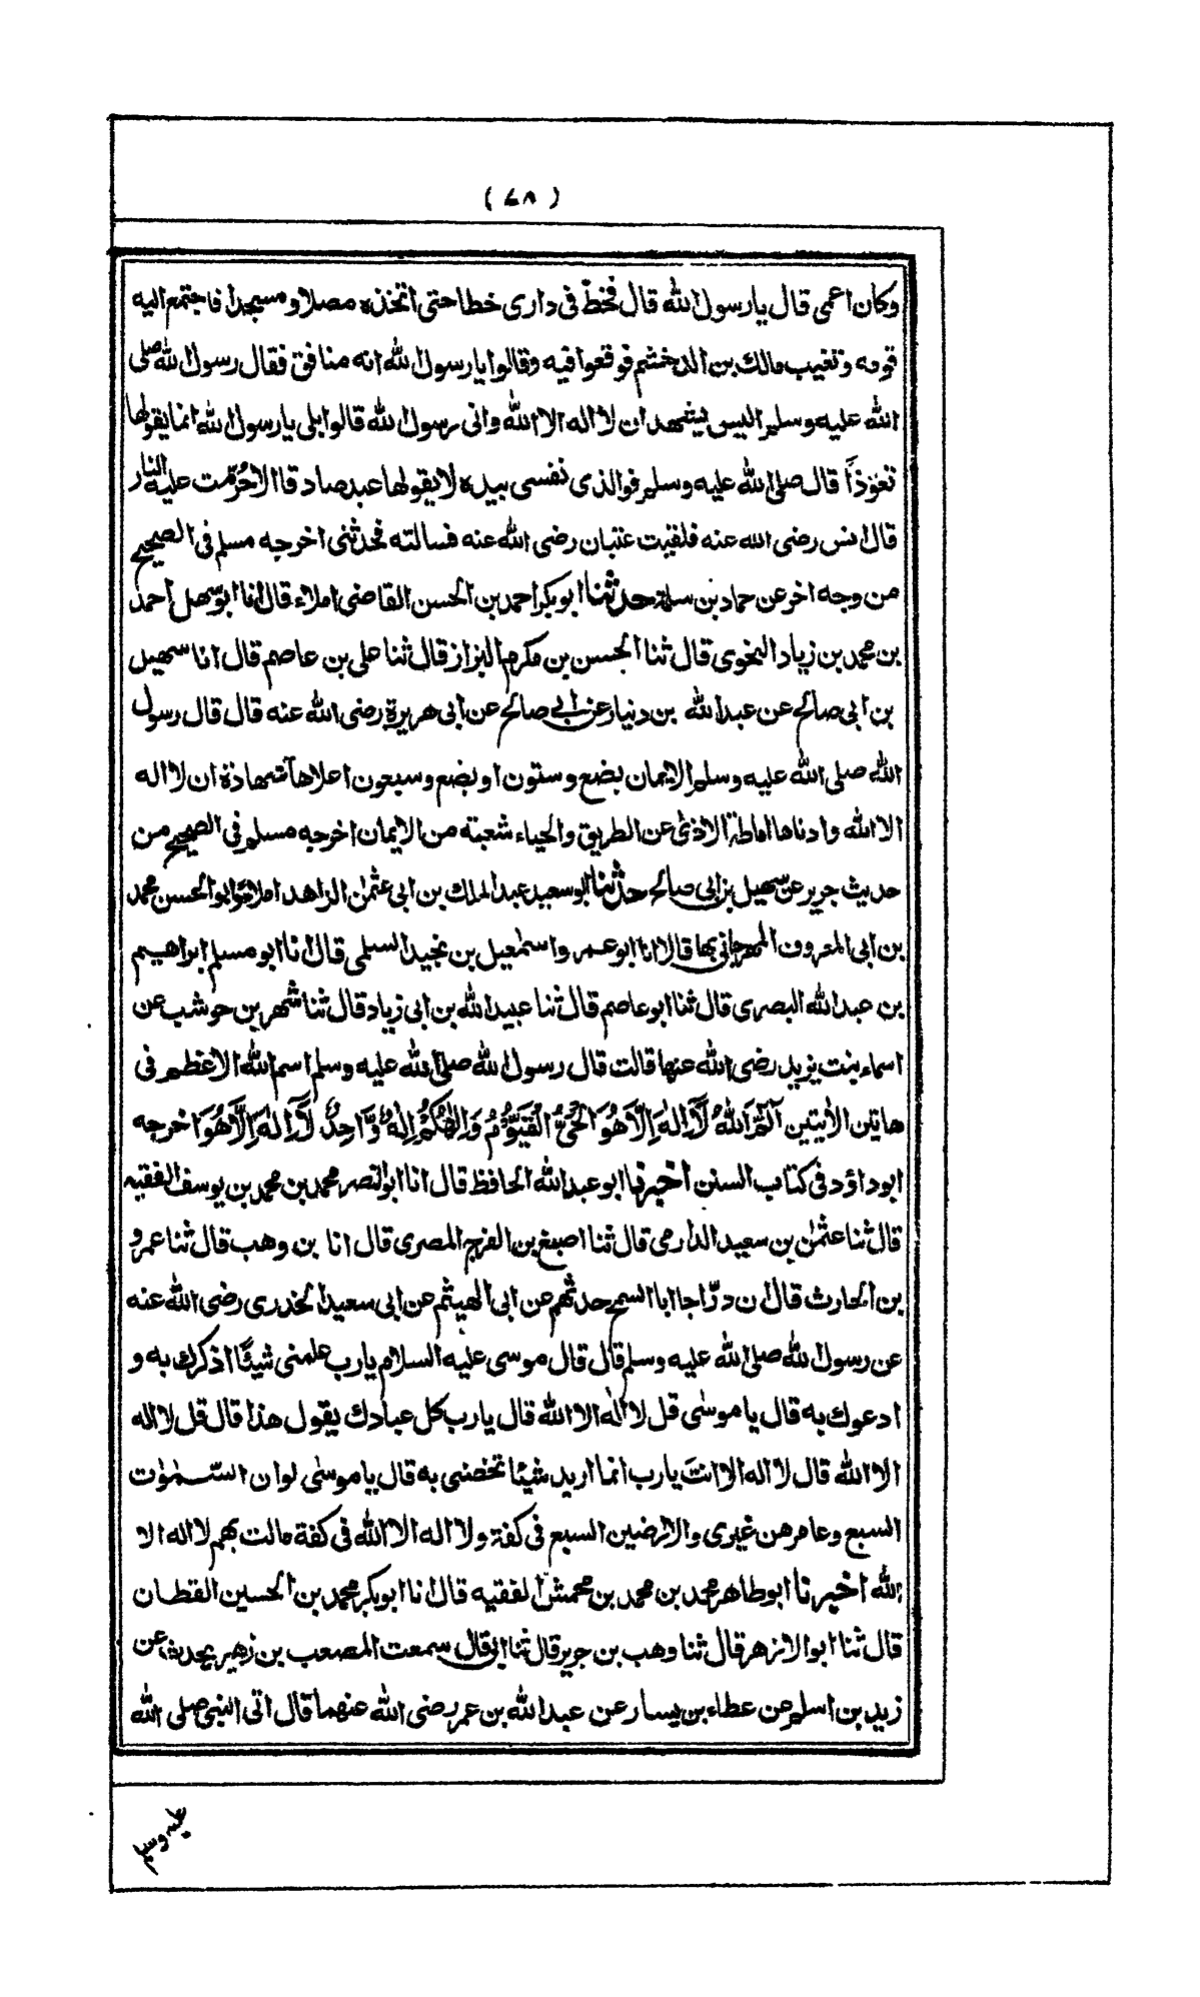 (٧٨)
وكان اعمى قال يا رسول الله قال فخطّ فى دارى خطا حتى اتخذه مصلا ومسجدا فاجتمع اليه
قومه وتغيب مالك بن الدخشم فوقعوا فيه وقالوا يا رسول الله انه منافق فقال رسول الله صلى
الله عليه وسلم اليس يشهد ان لا اله الا الله وانى رسول الله قالوا بلى يا رسول الله انما يقولها
تعوّذاً قال صلى الله عليه وسلم فوالذى نفسى بيده لا يقولها عبد صادقا الا حُرّمت عليه النار
قال انس رضى الله عنه فلقيت عتبان رضى الله عنه فسالته فحدثنى اخرجه مسلم فى الصحيح
من وجه اخر عن حماد بن سلمة حدثنا ابو بكر احمد بن الحسن القاضى املاء قال انا ابو سهل احمد
بن محمد بن زياد النحوى قال ثنا الحسن بن مكرم البزاز قال ثنا على بن عاصم قال انا سهيل
بن ابى صالح عن عبد الله بن دينار عن ابى صالح عن ابى هريرة رضى الله عنه قال قال رسول
الله صلى الله عليه وسلم الايمان بضع وستون او بضع وسبعون اعلاها شهادة ان لا اله
الا الله وادناها اماطة الاذى عن الطريق والحياء شعبة من الايمان اخرجه مسلم فى الصحيح من
حديث جرير عن سهيل بن ابى صالح حدثنا ابو سعيد عبد الملك بن ابى عثمٰن الزاهد املاءً وابو الحسن محمد
بن ابى المعروف المهرجانى بها قالا انا ابو عمرو اسمٰعيل بن نجيد السلمى قال انا ابو مسلم ابراهيم
بن عبد الله البصرى قال ثنا ابو عاصم قال ثنا عبيد الله بن ابى زياد قال ثنا شهر بن حوشب عن
اسماء بنت يزيد رضى الله عنها قالت قال رسول الله صلى الله عليه وسلم اسم الله الاعظم فى
هاتين الأيتين الٓمّٓ اَللّٰهُ لَآ اِلٰهَ اِلَّا هُوَ الْحَىُّ الْقَيُّوْمُ وَاِلٰهُكُمْ اِلٰهٌ وَّاحِدٌ لَآ اِلٰهَ اِلَّا هُوَ اخرجه
ابو داؤد فى كتاب السنن اخبرنا ابو عبد الله الحافظ قال انا ابو النصر محمد بن محمد بن يوسف الفقيه
قال ثنا عثمٰن بن سعيد الدارمى قال ثنا اصبغ بن الفرج المصرى قال انا بن وهب قال ثنا عمرو
بن الحارث قال ان درّاجا ابا السمح حدثهم عن ابى الهيثم عن ابى سعيد الخدرى رضى الله عنه
عن رسول الله صلى الله عليه وسلم قال قال موسى عليه السلام يا رب علمنى شيئًا اذكرك به و
ادعوك به قال يا موسٰى قل لا الٰه الا الله قال يا رب كل عبادك يقول هذا قال قل لا اله
الا الله قال لا اله الا انت يا رب انما اريد شيئا تخصنى به قال يا موسٰى لو ان السّمٰوٰت
السبع وعامرهن غيرى والارضين السبع فى كفة ولا اله الا الله فى كفة مالت بهم لا اله الا
الله اخبرنا ابو طاهر محمد بن محمد بن محمش الفقيه قال انا ابو بكر محمد بن الحسين القطان
قال ثنا ابو الازهر قال ثنا وهب بن جرير قال ثنا ابى قال سمعت المصعب بن زهير يحدث عن
زيد بن اسلم عن عطاء بن يسار عن عبد الله بن عمر رضى الله عنهما قال اتى النبى صلى الله
عليه وسلم